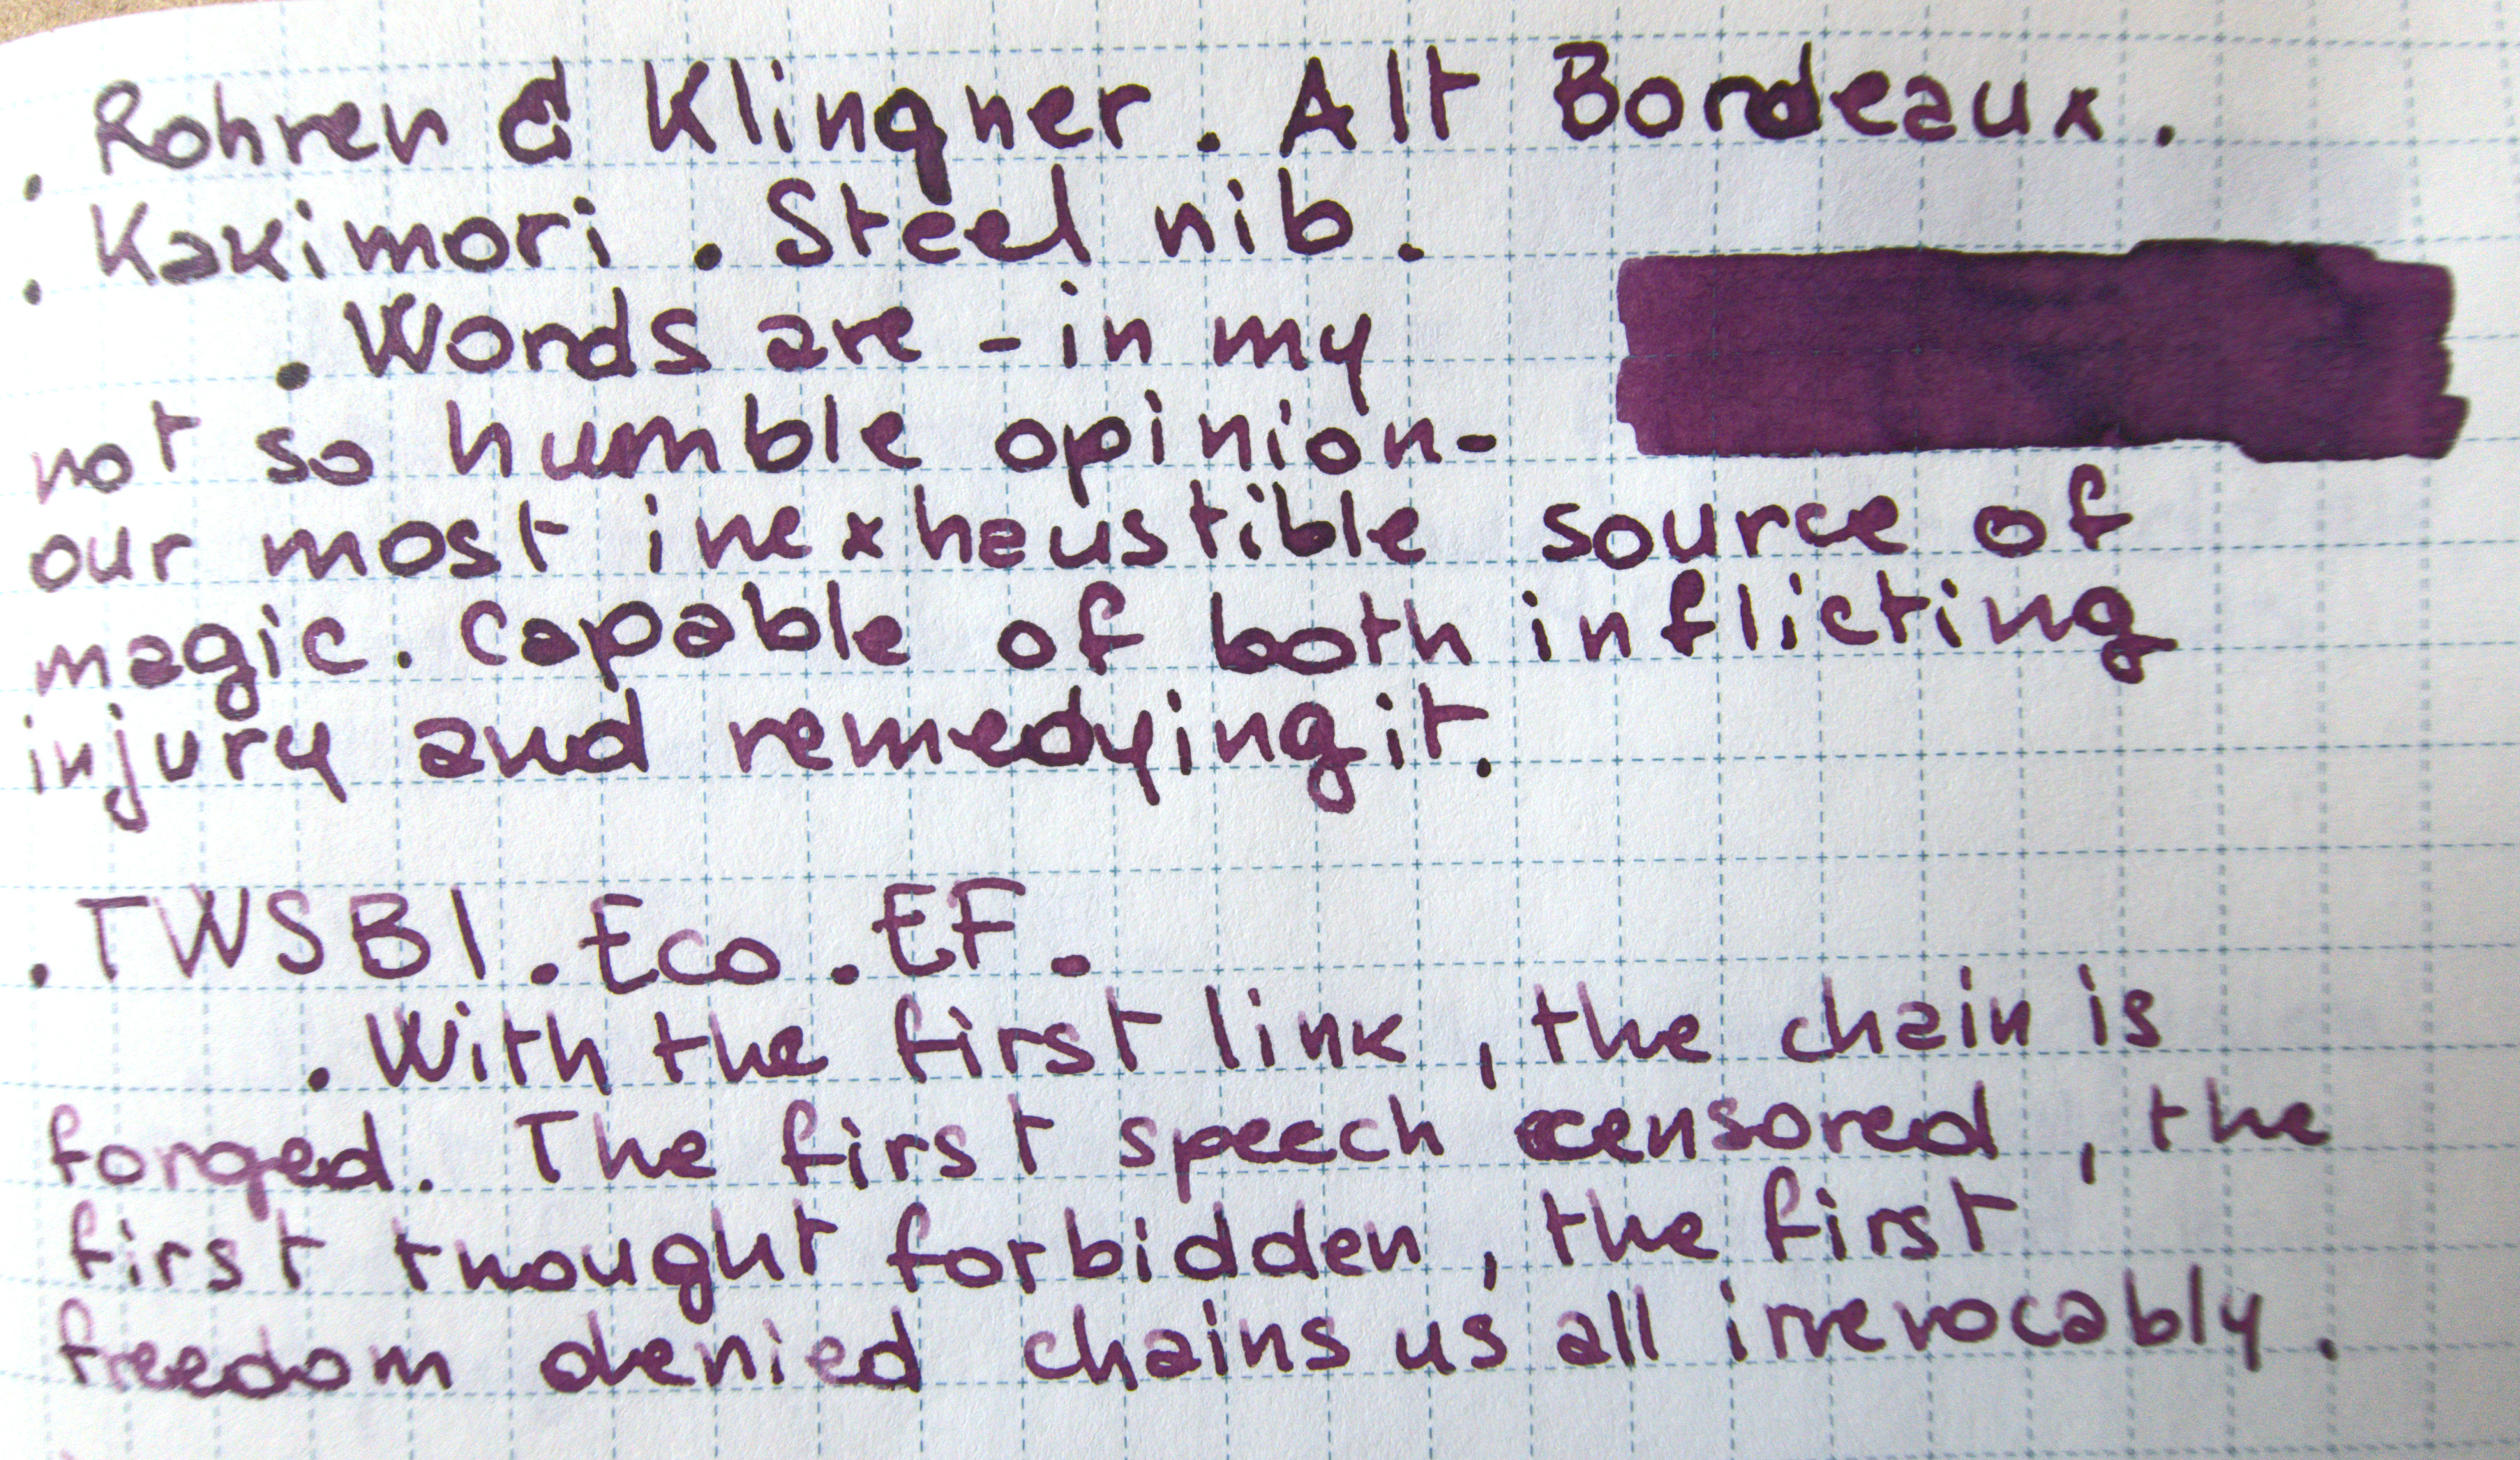 . Rohrer & Klingner. Alt Bordeaux.
. Kakimori. Steel nib.
. Words are - in my
not so humble opinion-
our most inexhaustible source of
magic. Capable of both inflicting
injury and remedying it.
. TWSBI. Eco. EF.
. With the first link, the chain is
forged. The first speech censored, the
first thought forbidden, the first
freedom denied chains us all irrevocably.